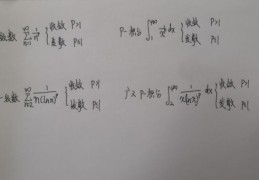 级数 ∑_{n=1}^{∞} 1/n^p { 收敛 P>1
发散 P≤1
P-积分 ∫_1^{+∞} 1/x^p dx { 收敛 P>1
发散 P≤1
-级数 ∑_{n=2}^{∞} 1/(n(ln n)^p) { 收敛 P>1
发散 P≤1
广义 P-积分 ∫_2^{+∞} 1/(x(ln x)^p) dx { 收敛 P>1
发散 P≤1